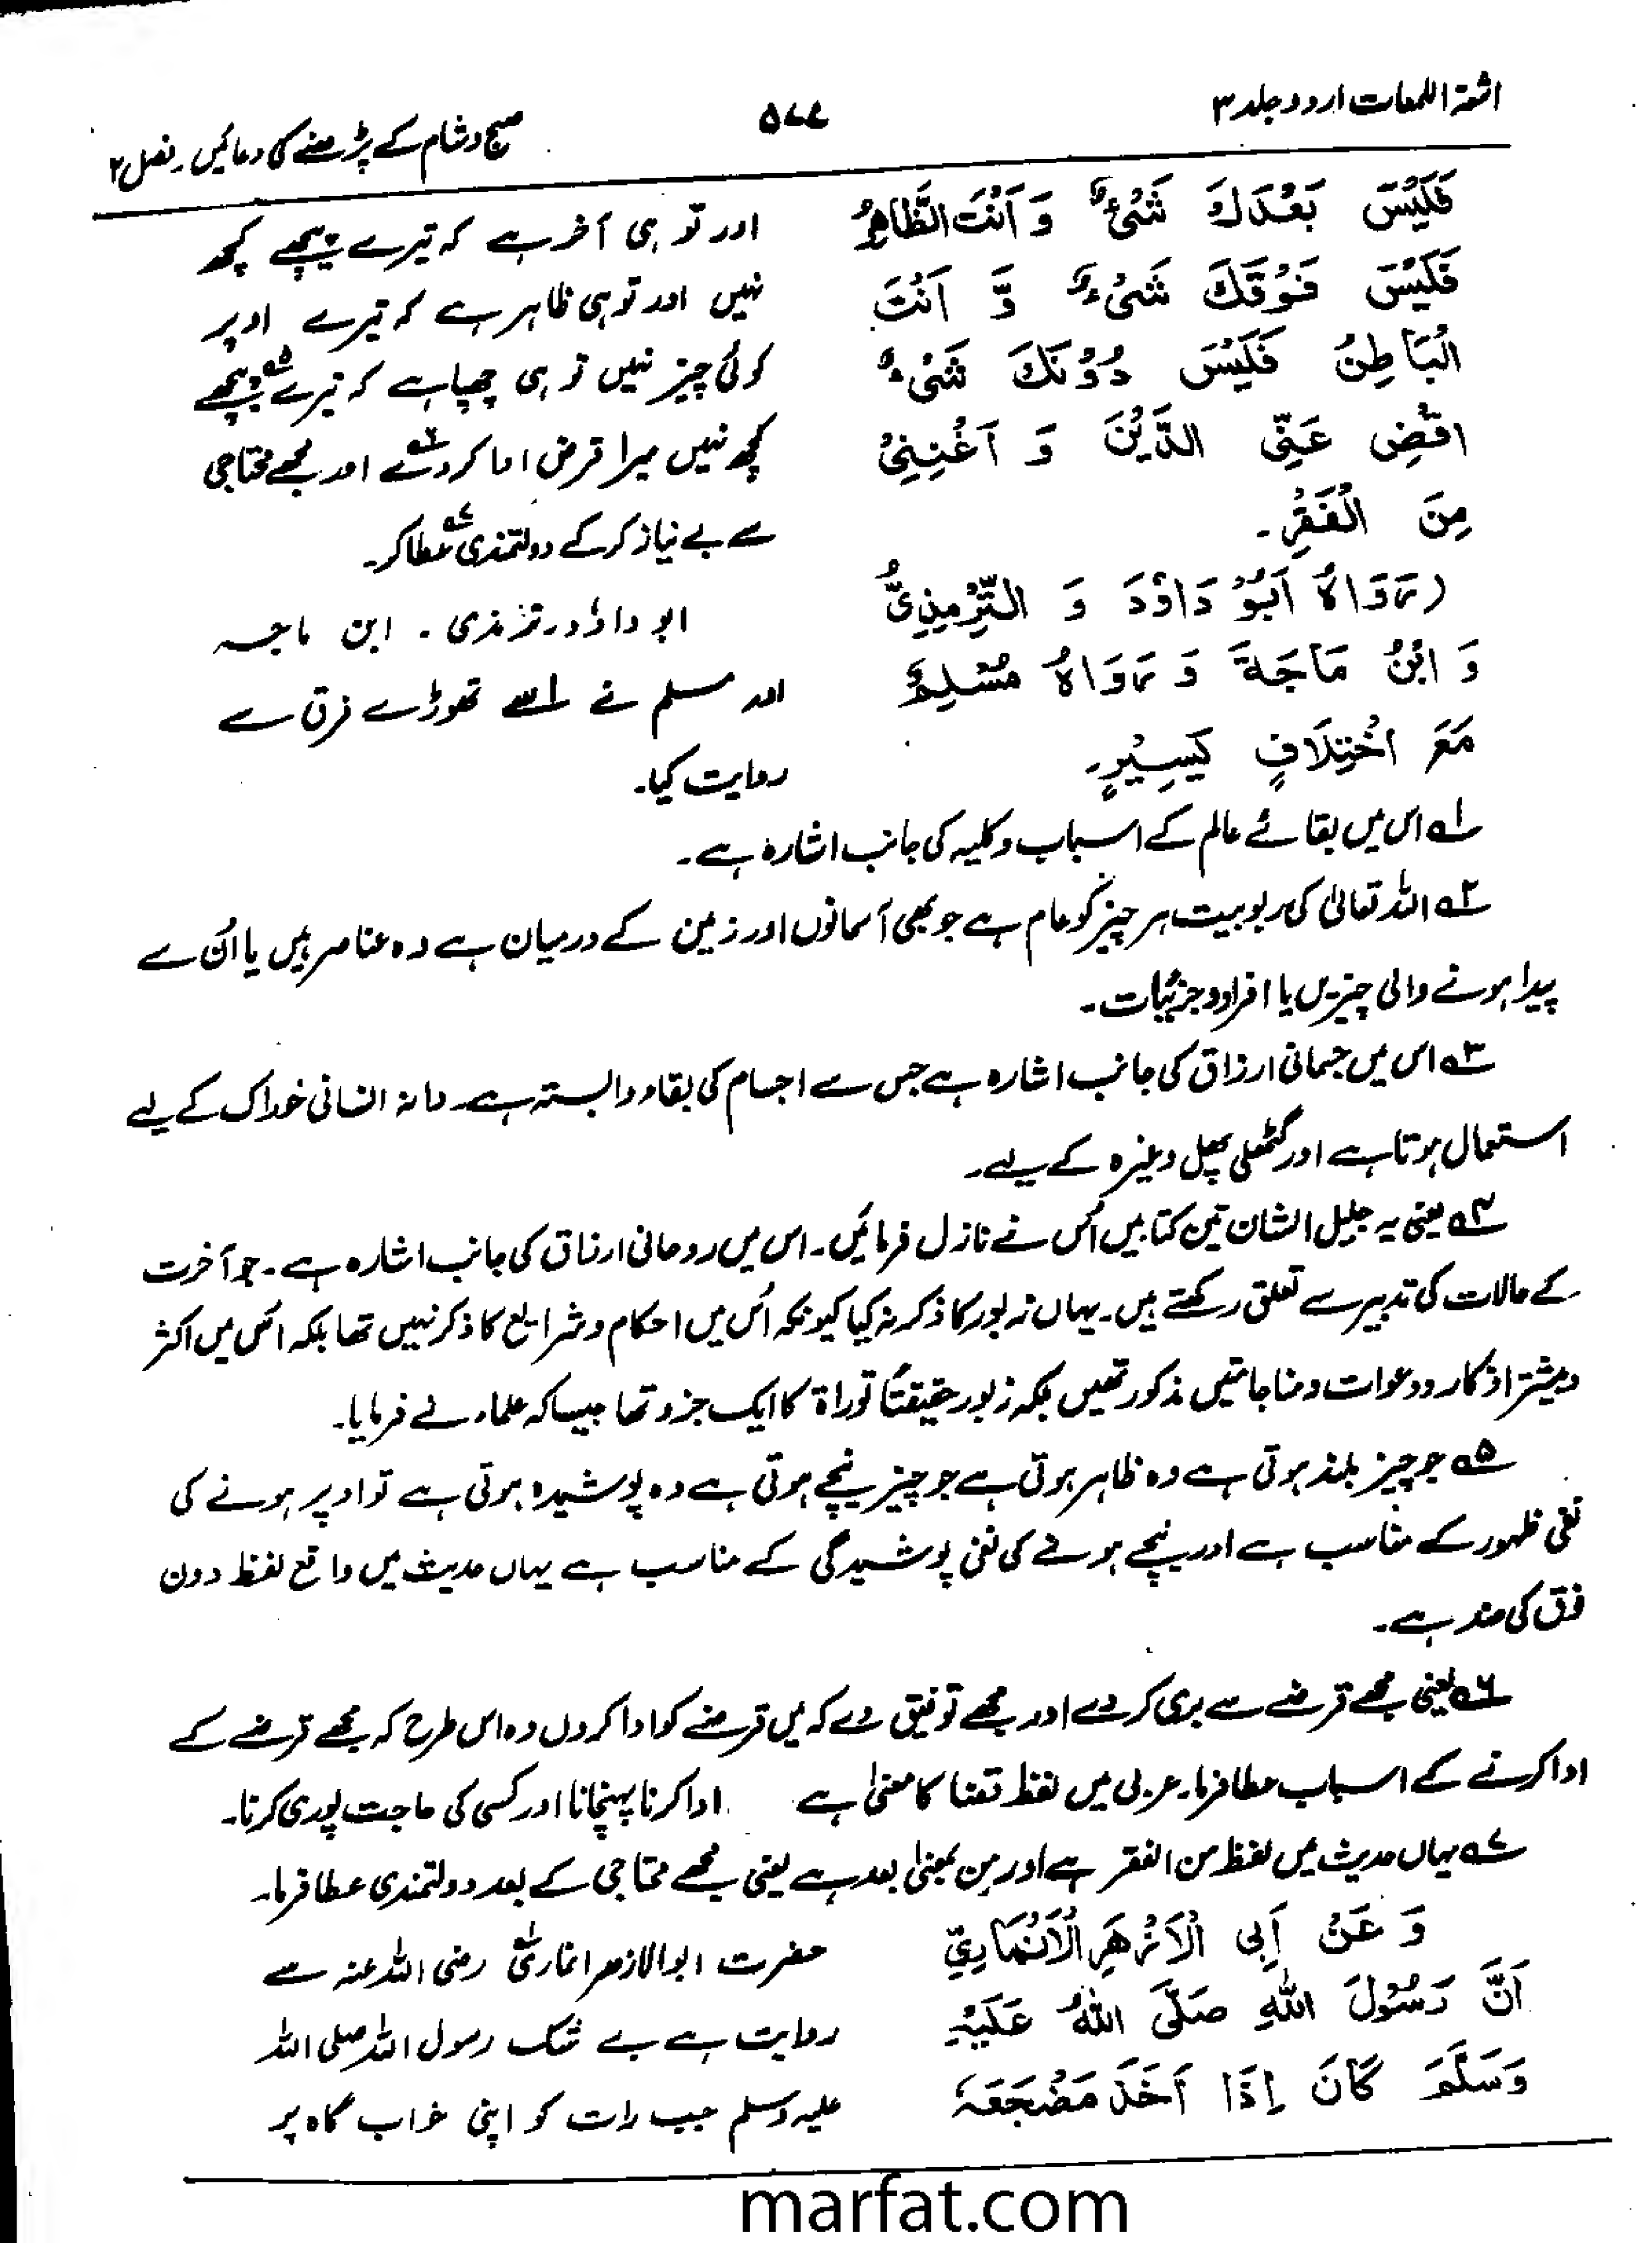 اشعۃ اللمعات اردو جلد ۳
۵۷۷
صبح و شام کے پڑھنے کی دعائیں ۔ فصل ۲
فَلَيْسَ بَعْدَكَ شَيْءٌ وَ اَنْتَ الظَّاهِرُ
فَلَيْسَ فَوْقَكَ شَيْءٌ وَّ اَنْتَ
الْبَاطِنُ فَلَيْسَ دُوْنَكَ شَيْءٌ
اقْضِ عَنِّى الدَّيْنَ وَ اَغْنِنِىْ
مِنَ الْفَقْرِ ۔
(رَوَاهُ اَبُوْ دَاوٗدَ وَ التِّرْمِذِىُّ
وَ ابْنُ مَاجَةَ وَ رَوَاهُ مُسْلِمٌ
مَعَ اخْتِلَافٍ يَسِيْرٍ۔
اور تو ہی آخر ہے کہ تیرے پیچھے کچھ
نہیں اور تو ہی ظاہر ہے کہ تیرے اوپر
کوئی چیز نہیں تو ہی چھپا ہے کہ تیرے ۵؎ پیچھے
کچھ نہیں میرا قرض ادا کر دے ۶؎ اور مجھے محتاجی
سے بے نیاز کرکے دولتمندی ۷؎ عطا کر۔
ابو داؤد ، ترمذی ۔ ابن ماجہ
اور مسلم نے اسے تھوڑے فرق سے
روایت کیا۔
۱؎ اس میں بقائے عالم کے اسباب و کلیہ کی جانب اشارہ ہے۔
۲؎ اللہ تعالیٰ کی ربوبیت ہر چیز کو عام ہے جو بھی آسمانوں اور زمین کے درمیان ہے وہ عناصر ہیں یا اُن سے
پیدا ہونے والی چیزیں یا افراد و جزئیات۔
۳؎ اس میں جسمانی ارزاق کی جانب اشارہ ہے جس سے اجسام کی بقاء وابستہ ہے۔ دانہ انسانی خوراک کے لیے
استعمال ہوتا ہے اور گٹھلی پھل وغیرہ کے لیے۔
۴؎ یعنی یہ جلیل الشان تین کتابیں اُس نے نازل فرمائیں۔ اس میں روحانی ارزاق کی جانب اشارہ ہے۔ جو آخرت
کے حالات کی تدبیر سے تعلق رکھتے ہیں۔ یہاں زبور کا ذکر نہ کیا کیونکہ اُس میں احکام و شرایع کا ذکر نہیں تھا بلکہ اُس میں اکثر
و بیشتر اذکار و دعوات و مناجاتیں مذکور تھیں بلکہ زبور حقیقتاً توراۃ کا ایک جزو تھا جیسا کہ علماء نے فرمایا۔
۵؎ جو چیز بلند ہوتی ہے وہ ظاہر ہوتی ہے جو چیز نیچے ہوتی ہے وہ پوشیدہ ہوتی ہے تو اوپر ہونے کی
نفی ظہور کے مناسب ہے اور نیچے ہونے کی نفی پوشیدگی کے مناسب ہے یہاں حدیث میں واقع لفظ دون
فوق کی ضد ہے۔
۶؎ یعنی مجھے قرضے سے بری کر دے اور مجھے توفیق دے کہ میں قرضے کو ادا کروں وہ اس طرح کہ مجھے قرضے کے
ادا کرنے کے اسباب عطا فرما۔ عربی میں لفظ قضا کا معنیٰ ہے ادا کرنا پہنچانا اور کسی کی حاجت پوری کرنا۔
۷؎ یہاں حدیث میں لفظ من الفقر ہے اور مِن بمعنیٰ بعد ہے یعنی مجھے محتاجی کے بعد دولتمندی عطا فرما۔
وَ عَنْ اَبِى الْاَزْهَرِ الْاَنْمَارِيِّ
اَنَّ رَسُوْلَ اللّٰهِ صَلَّى اللّٰهُ عَلَيْهِ
وَسَلَّمَ كَانَ اِذَا اَخَذَ مَضْجَعَهٗ
حضرت ابوالازہر انماری ۱؎ رضی اللہ عنہ سے
روایت ہے بے شک رسول اللہ صلی اللہ
علیہ وسلم جب رات کو اپنی خواب گاہ پر
marfat.com